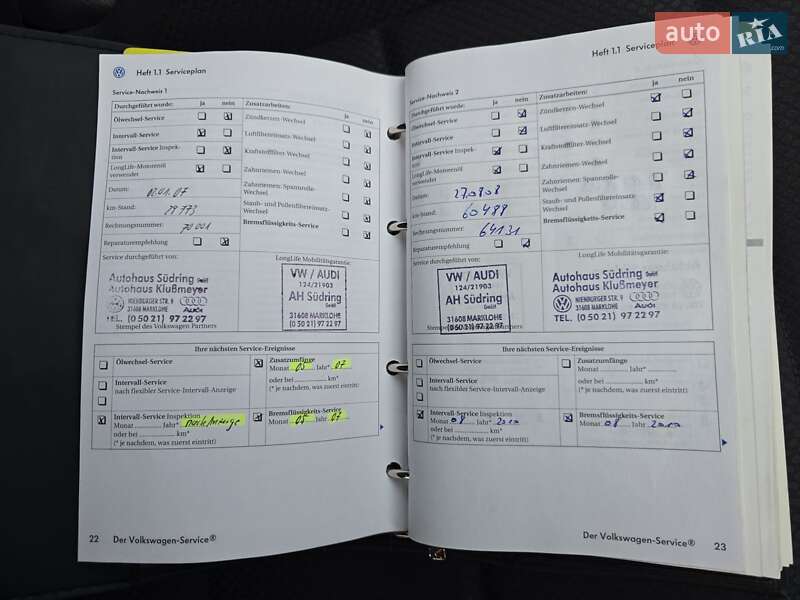 auto RIA.com
Heft 1.1 Serviceplan
Service-Nachweis 1
Durchgeführt wurde: ja nein Zusatzarbeiten: ja nein
Ölwechsel-Service Zündkerzen-Wechsel
Intervall-Service Luftfiltereinsatz-Wechsel
Intervall-Service Inspek-
tion Kraftstofffilter-Wechsel
LongLife-Motorenöl
verwendet Zahnriemen-Wechsel
Datum: Zahnriemen- Spannrolle-
Wechsel
km-Stand: 29 773 Staub- und Pollenfiltereinsatz-
Wechsel
Rechnungsnummer: 70001 Bremsflüssigkeits-Service
Reparaturempfehlung
Service durchgeführt von: LongLife Mobilitätsgarantie:
Autohaus Südring GmbH
Autohaus Klußmeyer
NIENBURGER STR. 9
31608 MARKLOHE Audi
TEL. (0 50 21) 97 22 97
VW / AUDI
124/21903
AH Südring
GmbH
31608 MARKLOHE
(0 50 21) 97 22 97
Stempel des Volkswagen Partners
Ihre nächsten Service-Ereignisse
Ölwechsel-Service Zusatzumfänge
Monat 05 Jahr* 07
Intervall-Service oder bei km*
nach flexibler Service-Intervall-Anzeige (* je nachdem, was zuerst eintritt)
Intervall-Service Inspektion Bremsflüssigkeits-Service
Monat Jahr* nach Anzeige Monat 05 Jahr 07
oder bei km*
(* je nachdem, was zuerst eintritt)
22 Der Volkswagen-Service®
Heft 1.1 Serviceplan
Service-Nachweis 2
Durchgeführt wurde: ja nein Zusatzarbeiten: ja nein
Ölwechsel-Service Zündkerzen-Wechsel
Intervall-Service Luftfiltereinsatz-Wechsel
Intervall-Service Inspek-
tion Kraftstofffilter-Wechsel
LongLife-Motorenöl
verwendet Zahnriemen-Wechsel
Datum: 270808 Zahnriemen- Spannrolle-
Wechsel
km-Stand: 60488 Staub- und Pollenfiltereinsatz-
Wechsel
Rechnungsnummer: 64131 Bremsflüssigkeits-Service
Reparaturempfehlung
Service durchgeführt von: LongLife Mobilitätsgarantie:
VW / AUDI
124/21903
AH Südring
GmbH
31608 MARKLOHE
(0 50 21) 97 22 97
Stempel des Volkswagen Partners
Autohaus Südring GmbH
Autohaus Klußmeyer
NIENBURGER STR. 9
31608 MARKLOHE Audi
TEL. (0 50 21) 97 22 97
Ihre nächsten Service-Ereignisse
Ölwechsel-Service Zusatzumfänge
Monat Jahr*
Intervall-Service oder bei km*
nach flexibler Service-Intervall-Anzeige (* je nachdem, was zuerst eintritt)
Intervall-Service Inspektion Bremsflüssigkeits-Service
Monat 08 Jahr* 2010 Monat 08 Jahr 2010
oder bei km*
(* je nachdem, was zuerst eintritt)
Der Volkswagen-Service® 23